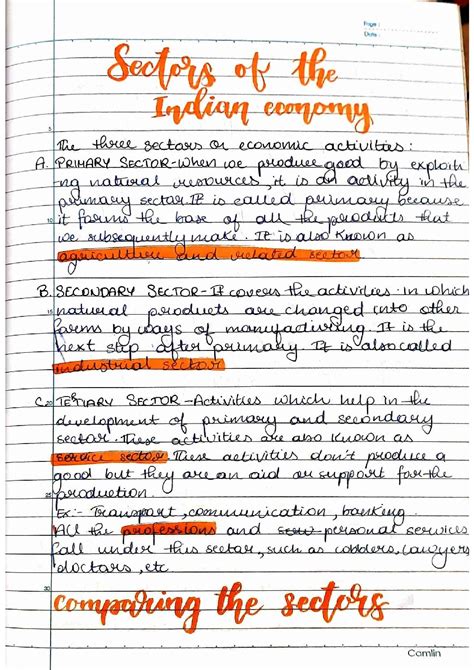 Page :
Date :
Sectors of the
Indian economy
The three sectors or economic activities :
A. PRIMARY SECTOR-When we produce good by exploiti
ng natural resources, it is an activity in the
primary sector.It is called primary because
it forms the base of all the products that
we subsequently make. It is also known as
agriculture and related sector.
B. SECONDARY SECTOR-It covers the activities in which
natural products are changed into other
forms by ways of manufacturing. It is the
next step after primary. It is also called
industrial sector
C. TERTIARY SECTOR-Activities which help in the
development of primary and secondary
sector. These activities are also known as
service sector. These activities don't produce a
good but they are an aid or support for the
production.
Ex:- Transport, communication, banking.
All the professions and personal services
fall under this sector, such as cobblers, lawyers
doctors, etc
comparing the sectors
Camlin